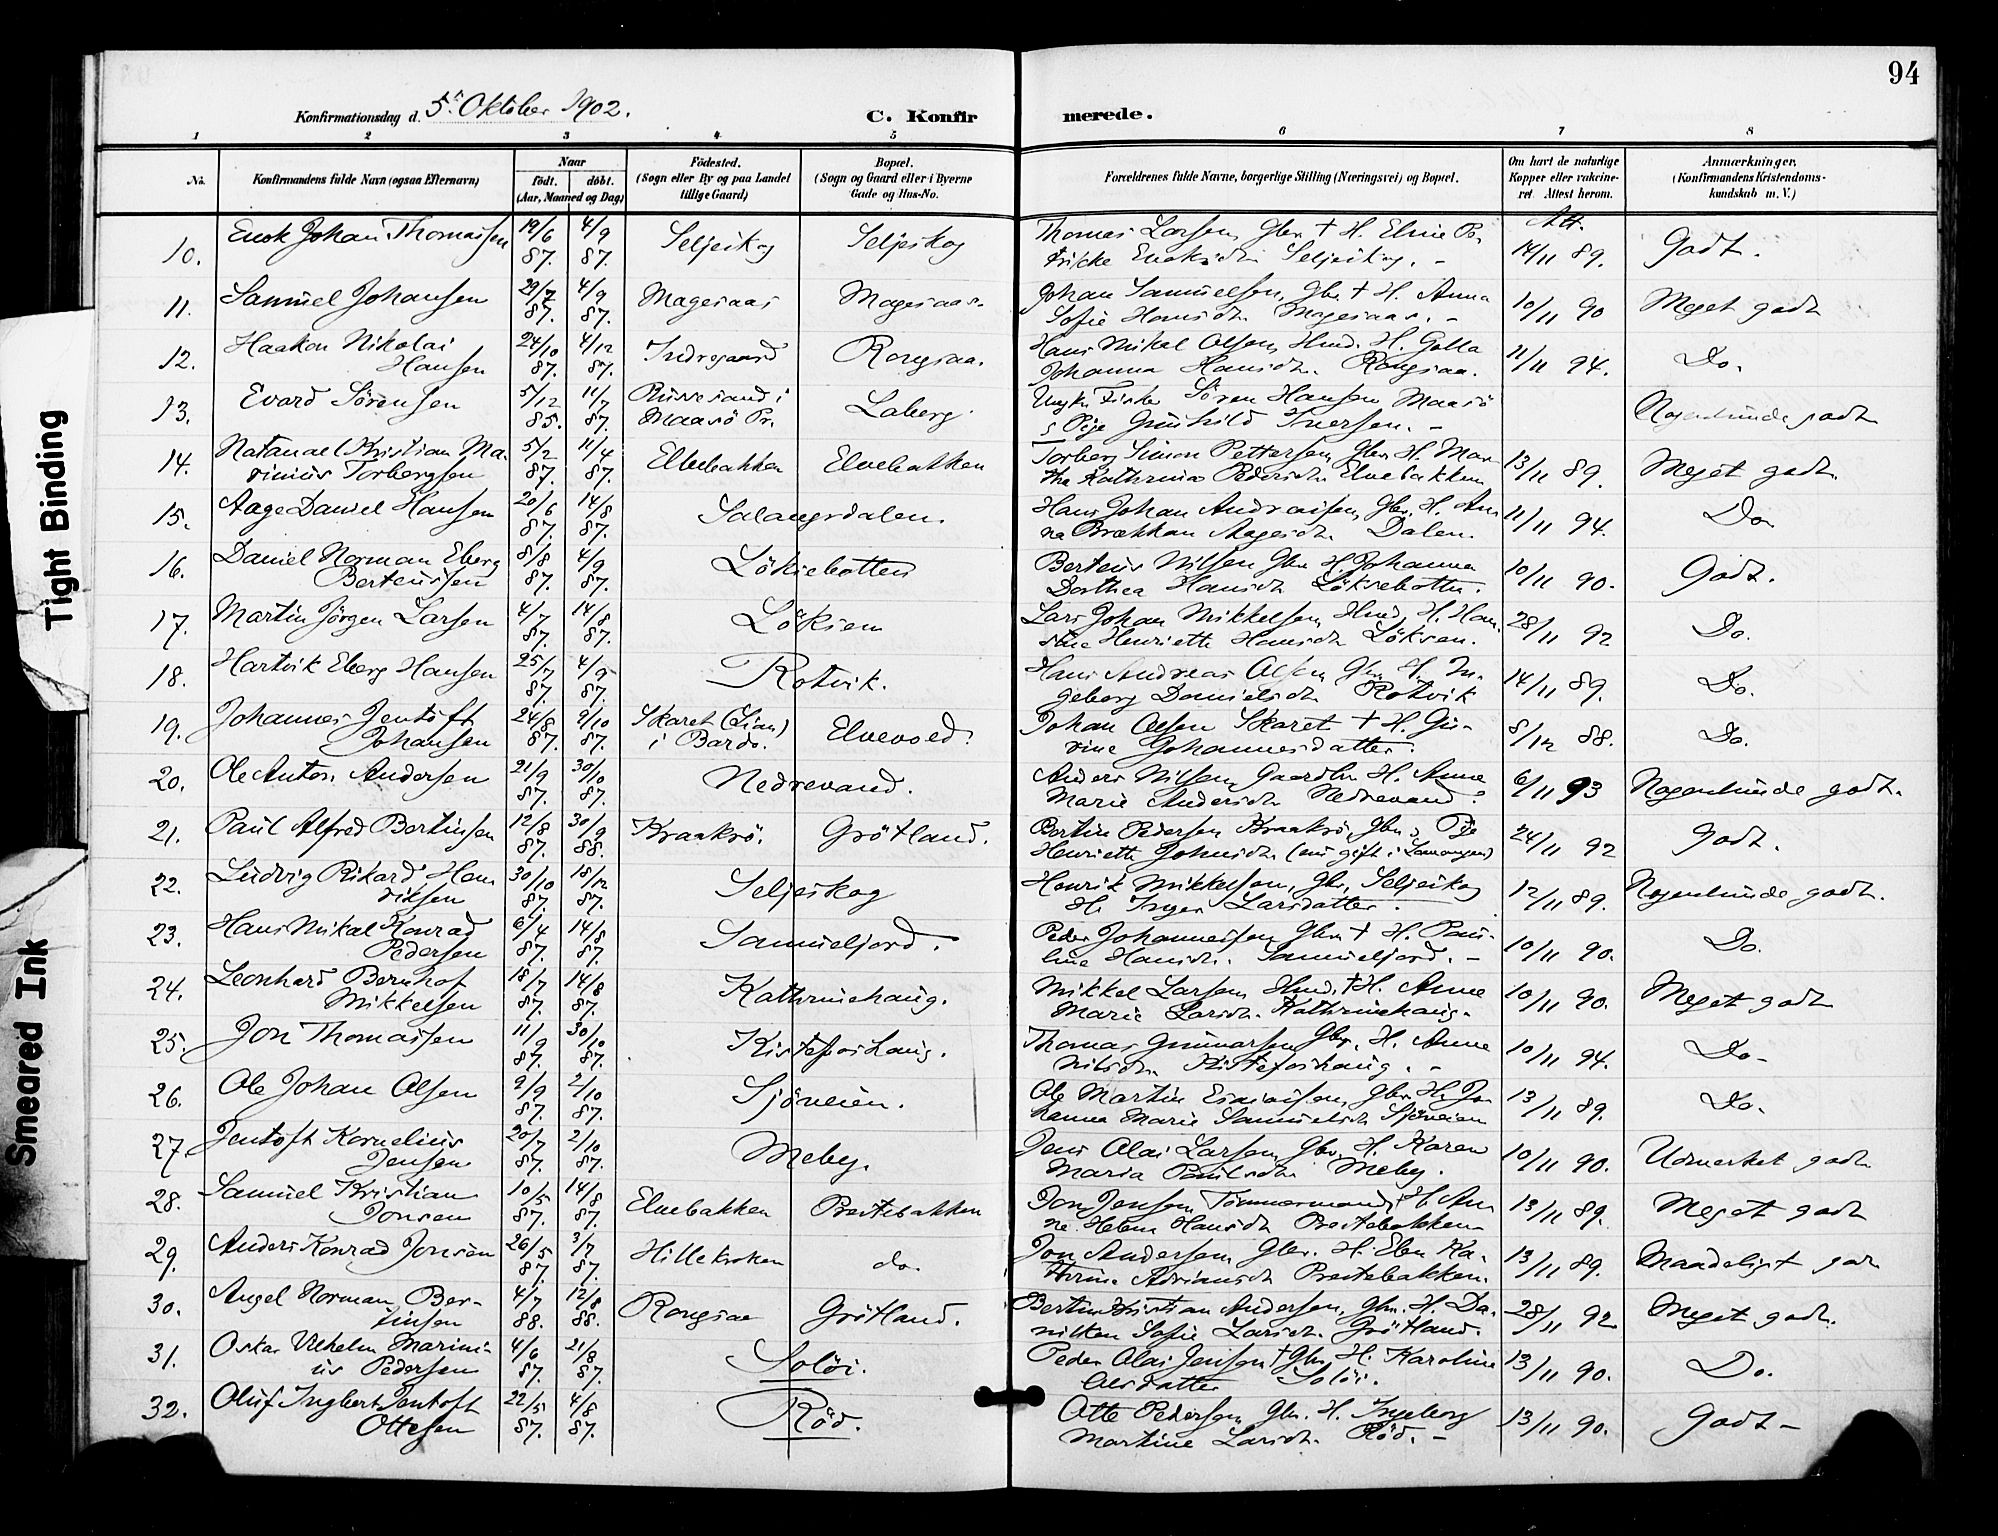 94
Konfirmationsdag d. 5te Oktober 1902.
C. Konfirmerede.
1 2 3 4 5 6 7 8
No.
Konfirmandens fulde Navn (ogsaa Efternavn)
Naar
født. døbt.
(Aar, Maaned og Dag)
Födested.
(Sogn eller By og paa Landet
tillige Gaard)
Bopæl.
(Sogn og Gaard eller i Byerne
Gade og Hus-No.
Forældrenes fulde Navne, borgerlige Stilling (Næringsvei) og Bopæl.
Om havt de naturlige
Kopper eller vakcine-
ret. Attest herom.
Anmærkninger.
(Konfirmandens Kristendoms-
kundskab m. V.)
10. Enok Johan Thomassen 19/6 87. 4/9 87. Seljeskog Seljeskog Thomas Larsen, Gbr. † H. Eline Pe-
trikke Enoksdtr. Seljeskog. - Att. 14/11 89. Godt.
11. Samuel Johansen 29/7 87. 4/9 87. Magesaas Magesaas. Johan Samuelsen, Gbr. † H. Anna
Sofie Hansdtr. Magesaas. - 10/11 90 Meget godt
12. Haakon Nikolai
Hansen 24/10 87. 4/12 87. Indregaard Rongsaa. Hans Mikal Olsen, Hmd. H. Golla
Johanna Hansdtr. Rongsaa. 11/11 94. Do.
13. Evard Sörensen 5/12 85. 11/7 87. Russesund i
Maasö Pr. Laberg. Ungkr. Fisker Sören Hansen Maasö
s Pige Gunhild Iversen. - Nogenlunde godt
14. Natanael Kristian Ma-
rinius Torbergsen 5/2 87. 11/4 87. Elvebakken Elvebakken Torberg Simon Pettersen, Gbr. H. Mar-
tha Kathrina Pedersdtr. Elvebakken 13/11 89. Meget godt.
15. Aage Daniel Hansen 20/6 87. 14/8 87. Salangsdalen. Hans Johan Andreassen, Gbr. H. An-
na Brækkan Aagesdtr. Dalen. 11/11 94. Do.
16. Daniel Norman Eberg
Berteussen 8/8 87. 4/9 87. Löksebotten Berteus Nilsen Gbr. H. Johanna
Dorthea Hansdtr. Löksebotten. 10/11 90. Godt.
17. Martin Jörgen Larsen 4/7 87. 14/8 87. Löksen Lars Johan Mikkelsen, Hmd. H. Han-
sine Henriette Hansdtr. Löksen. 28/11 92 Do.
18. Hartvik Eberg Hansen 25/7 87. 4/9 87. Rotvik. Hans Andreas Olsen, Gbr. H. In-
geborg Danielsdtr. Rotvik 14/11 89. Do.
19. Johannes Jentoft
Johansen 24/8 87. 9/10 87. Skaret (Lian)
i Bardo. Elvevold. Johan Olsen Skaret † H. Gu-
rine Johannesdatter. 8/12 88. Do.
20. Ole Anton Andersen 21/9 87. 30/10 87. Nedrevand. Anders Nilsen, Gaardbr. H. Anne
Marie Andersdtr. Nedrevand. 6/11 93 Nogenlunde godt.
21. Paul Alfred Bertinsen 12/8 87. 30/9 88. Kraakrö. Grötland. Bertin Pedersen Kraakrö, Gbr. s Pige
Henriette Johnsdtr. 24/11 92 Godt.
22. Ludvig Rikard Hen-
riksen 30/10 87. 18/12 87. Seljeskog Henrik Mikkelsen, Gbr., Seljeskog
H. Inger Larsdatter. 12/11 89. Nogenlunde godt.
23. Hans Mikal Konrad
Pedersen 6/4 87. 14/8 87. Samueljord. Peder Johannessen, Gbr. † H. Pau-
line Hansdtr. Samueljord. - 10/11 90. Do.
24. Leonhard Bernhof
Mikkelsen 18/7 87. 14/8 87. Kathrinehaug. Mikkel Larsen, Hmd. † H. Anne
Marie Larsdtr. Kathrinehaug. 10/11 90. Meget godt
25. Jon Thomassen 11/9 87. 30/10 87. Kistefoshaug. Thomas Gunnarsen Gbr. H. Anne
Nilsdtr. Kistefoshaug. - 10/11 94. Do.
26. Ole Johan Olsen 9/9 87. 2/10 87. Sjöveien. Ole Martin Esaiassen, Gbr. H. Jo-
hanna Marie Samuelsdtr. Sjöveien 13/11 89. Do.
27. Jentoft Kornelius
Jensen 20/7 87. 2/10 87. Meby. Jens Olai Larsen, Gbr. H. Karen
Maria Paulsdtr. Meby. 10/11 90. Udmerket godt
28. Samuel Kristian
Jonsen 10/5 87. 14/8 87. Elvebakken Prestebakken Jon Jensen, Tömmermand, H. An-
ne Helene Hansdtr. Prestebakken 13/11 89. Meget godt
29. Anders Konrad Jonsen 26/5 87. 3/7 87. Hillekroken do. Jon Andersen, Gbr. H. Elen Ka-
thrine Adriansdtr. Prestebakken. 13/11 89. Maadeligt godt
30. Angel Norman Ber-
tinsen 4/7 88. 12/8 88. Rongsaa Grötland. Bertin Kristian Andersen, Gbr. H. Da-
nikken Sofie Larsdtr. Grötland. 28/11 92 Meget godt.
31. Oskar Vilhelm Marini-
us Pedersen 4/6 87. 21/8 87. Solöi. Peder Olai Jensen † Gbr. H. Karoline
Olesdatter Solöi. 13/11 90. Do.
32. Oluf Ingbert Jentoft
Ottesen 22/5 87. 4/8 87. Röd. Otte Pedersen, Gbr. H. Ingeborg
Martine Larsdtr. Röd. - 13/11 90. Godt -
Tight Binding
Smeared Ink